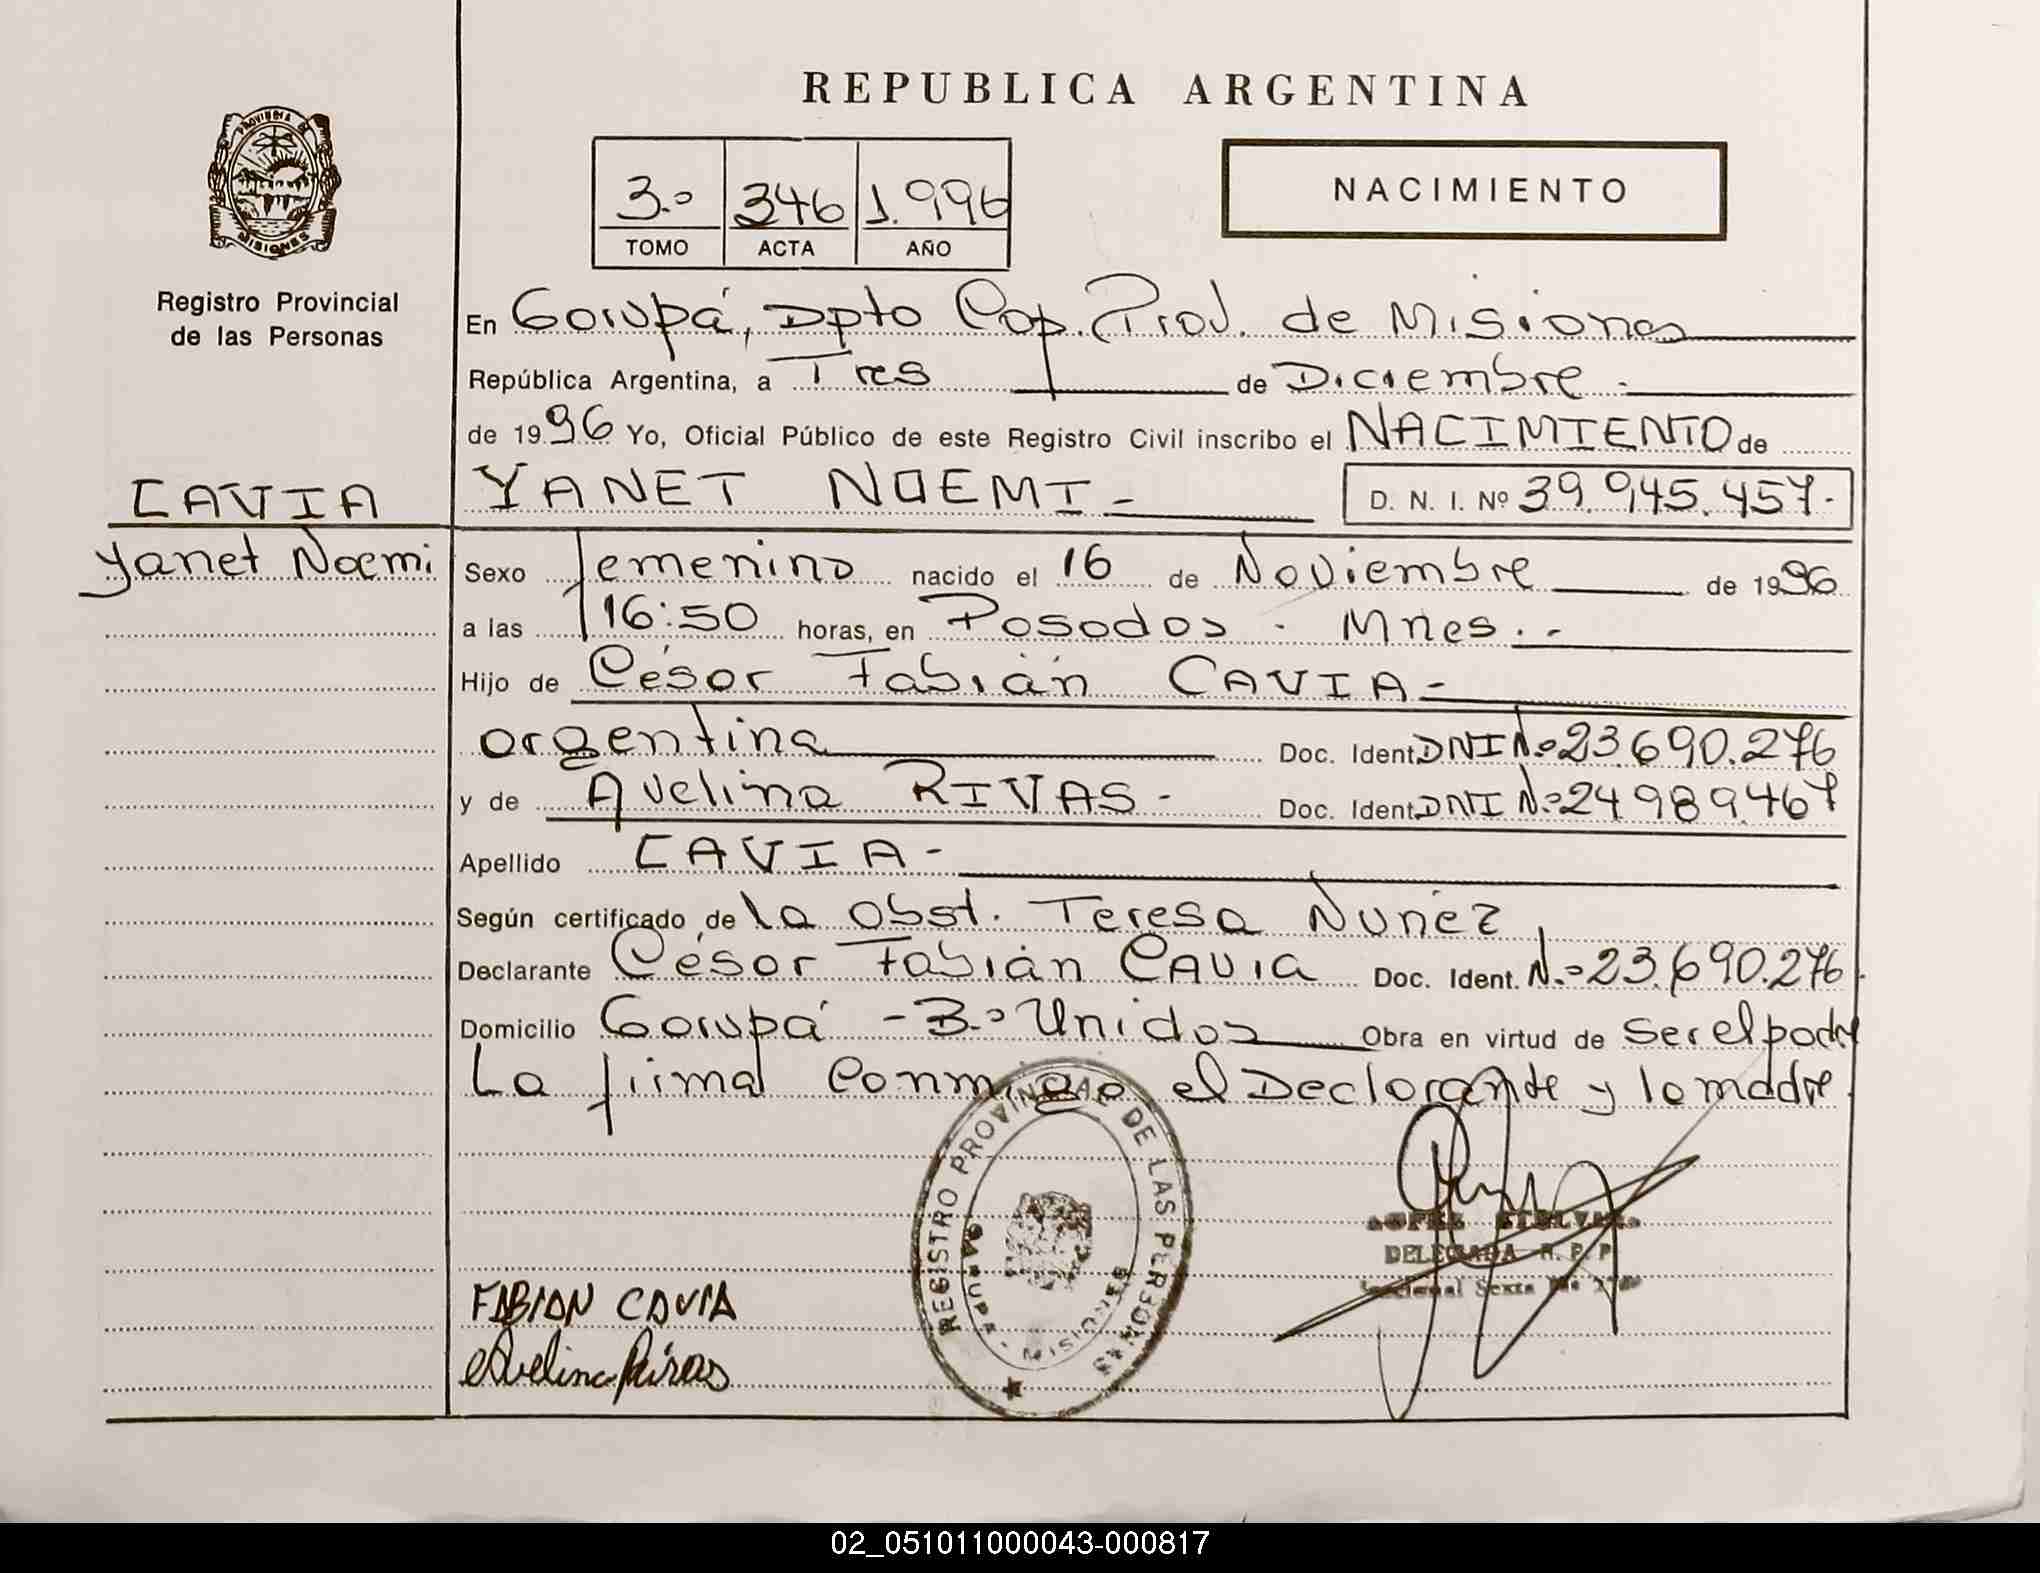 REPUBLICA ARGENTINA
PROVINCIA DE
MISIONES
Registro Provincial
de las Personas
3.º 346 1.996
TOMO ACTA AÑO
NACIMIENTO
En Garupá, Dpto Cap. Prov. de Misiones
República Argentina, a Tres de Diciembre.-
de 1996 Yo, Oficial Público de este Registro Civil inscribo el NACIMIENTO de
YANET NOEMI - D. N. I. Nº 39.945.457.
CAVIA
Yanet Noemi
Sexo femenino nacido el 16 de Noviembre de 1996
a las 16:50 horas, en Posadas - Mnes. -
Hijo de César Fabián CAVIA -
argentina Doc. Ident. DNI Nº 23.690.276
y de Avelina RIVAS - Doc. Ident. DNI Nº 24989467
Apellido CAVIA -
Según certificado de la Obst. Teresa Nuñez
Declarante César Fabián CAVIA Doc. Ident. Nº 23.690.276.
Domicilio Garupá - B.º Unidos Obra en virtud de ser el padre
La firma conmigo el Declarante y la madre.
REGISTRO PROVINCIAL DE LAS PERSONAS
GARUPA - MISIONES
DELEGADA R. P. P.
FABIAN CAVIA
Avelina Rivas
02_051011000043-000817